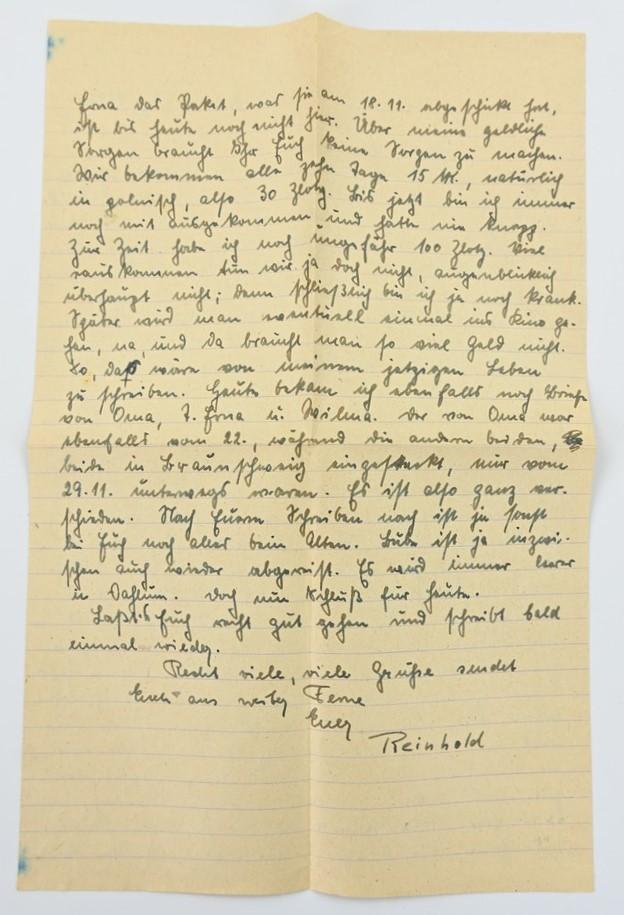 Erna das Paket, was sie am 18.11. abgeschickt hat,
ist bis heute noch nicht hier. Über meine geldliche
Sorgen braucht Ihr Euch keine Sorgen zu machen.
Wir bekommen alle zehn Tage 15 M., natürlich
in polnisch, also 30 Zloty. Bis jetzt bin ich immer
noch mit ausgekommen und hatte nie knapp.
Zur Zeit habe ich noch ungefähr 100 Zloty. Viel
rauskommen tun wir ja doch nicht, augenblicklich
überhaupt nicht; denn schließlich bin ich ja noch krank.
Später wird man eventuell einmal ins Kino ge-
hen, na, und da braucht man so viel Geld nicht.
So, daß wäre von meinem jetzigen Leben
zu schreiben. Heute bekam ich ebenfalls noch Briefe
von Oma, T. Erna u. Wilma. Der von Oma war
ebenfalls vom 22., während die andern beiden,
beide in Braunschweig eingesteckt, nur vom
29.11. unterwegs waren. Es ist also ganz ver-
schieden. Nach Euerm Schreiben nach ist ja sonst
bei Euch noch alles beim Alten. Bube ist ja inzwi-
schen auch wieder abgereist. Es wird immer leerer
in Dahlum. Doch nun Schluß für heute.
Laßt's Euch recht gut gehen und schreibt bald
einmal wieder.
Recht viele, viele Grüße sendet
Euch aus weiter Ferne
Euer
Reinhold